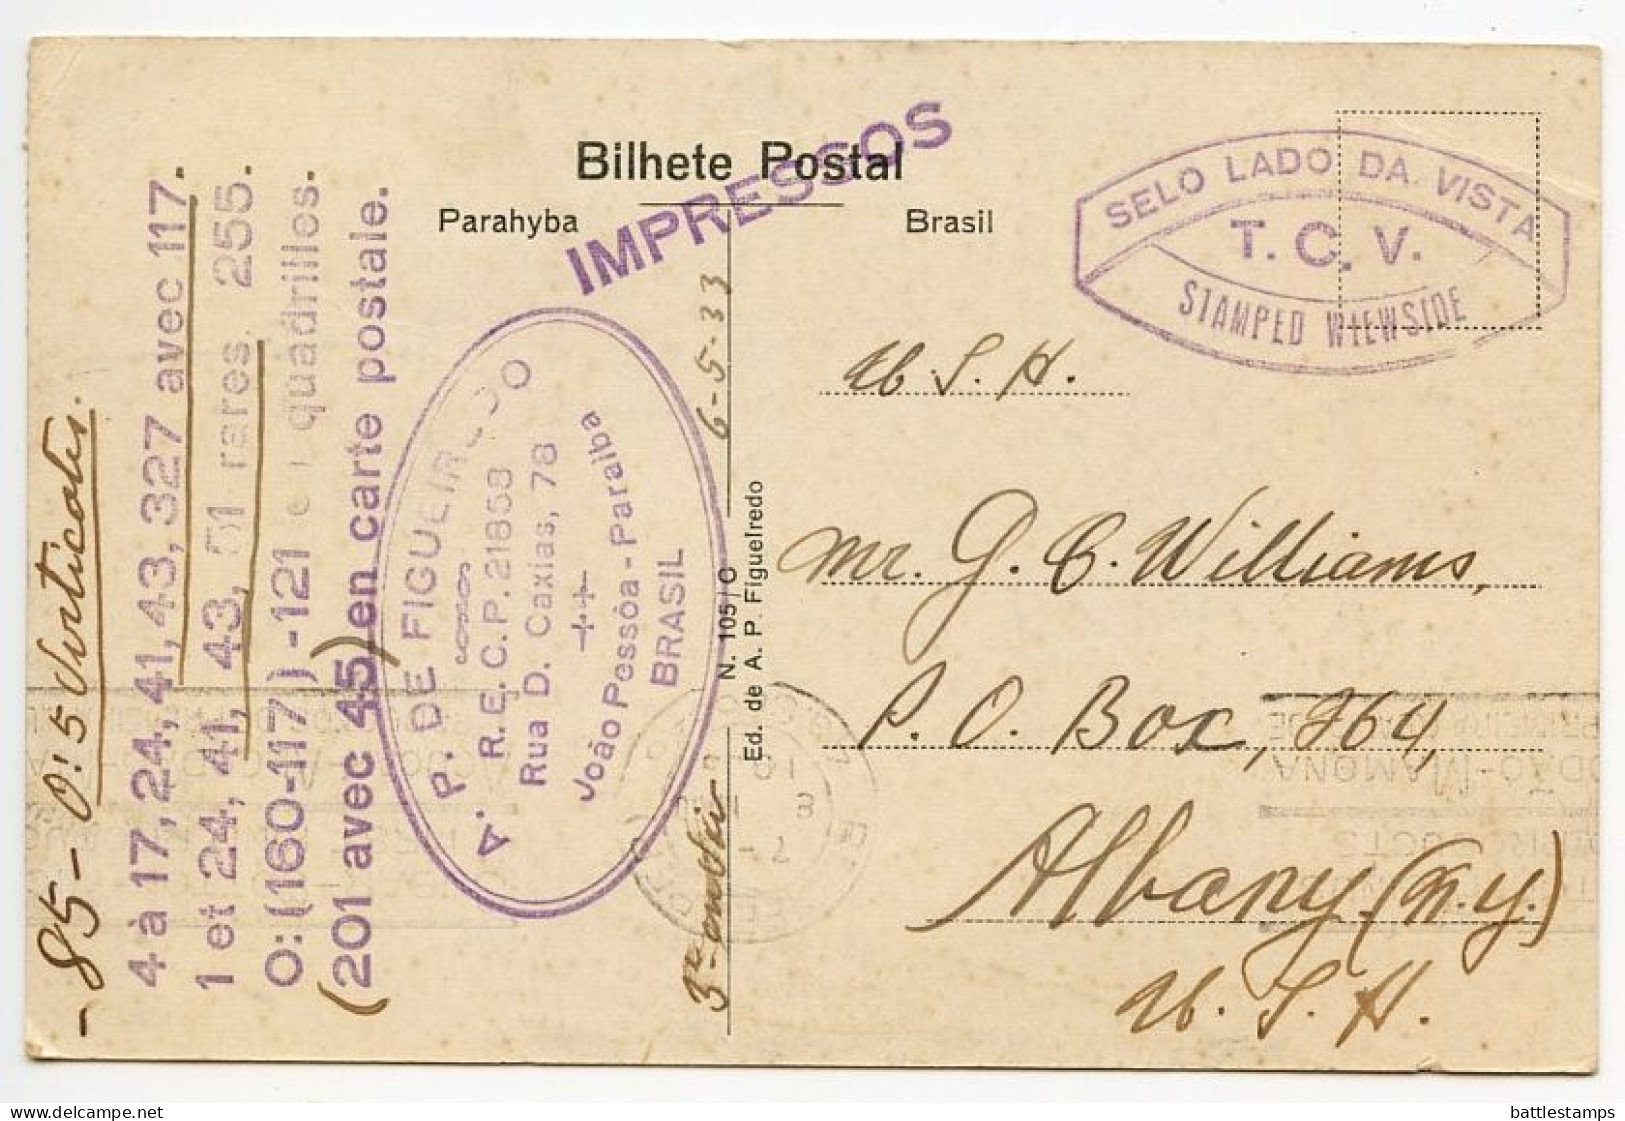 Bilhete Postal
Parahyba
Brasil
IMPRESSOS
SELO LADO DA VISTA
T. C. V.
STAMPED WIEWSIDE
U. S. A.
Mr. G. C. Williams,
P. O. Box, 264,
Albany (N. Y.)
U. S. A.
6-5-33
N. 105/O
Ed. de A. P. Figueiredo
A. P. DE FIGUEIREDO
R. E. C. P. 21858
Rua D. Caxias, 78
João Pessôa - Paraiba
BRASIL
- 85 - O: 5 Verticates.
4 à 17, 24, 41, 43, 327 avec 117.
1 et 24, 41, 43, 51 rares. 255.
O: (160-117) -121 en quadrilles.
(201 avec 45) en carte postale.